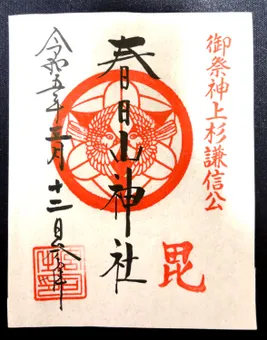 御祭神上杉謙信公
毘
春日山神社
令和五年三月十二日